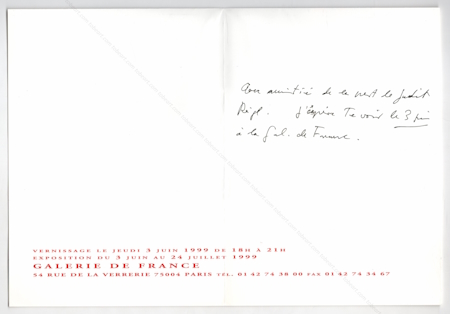 avec amitié de la part de Judit
Reigl. J'espère te voir le 3 juin
à la Gal. de France.
VERNISSAGE LE JEUDI 3 JUIN 1999 DE 18H À 21H
EXPOSITION DU 3 JUIN AU 24 JUILLET 1999
GALERIE DE FRANCE
54 RUE DE LA VERRERIE 75004 PARIS TÉL. 01 42 74 38 00 FAX 01 42 74 34 67